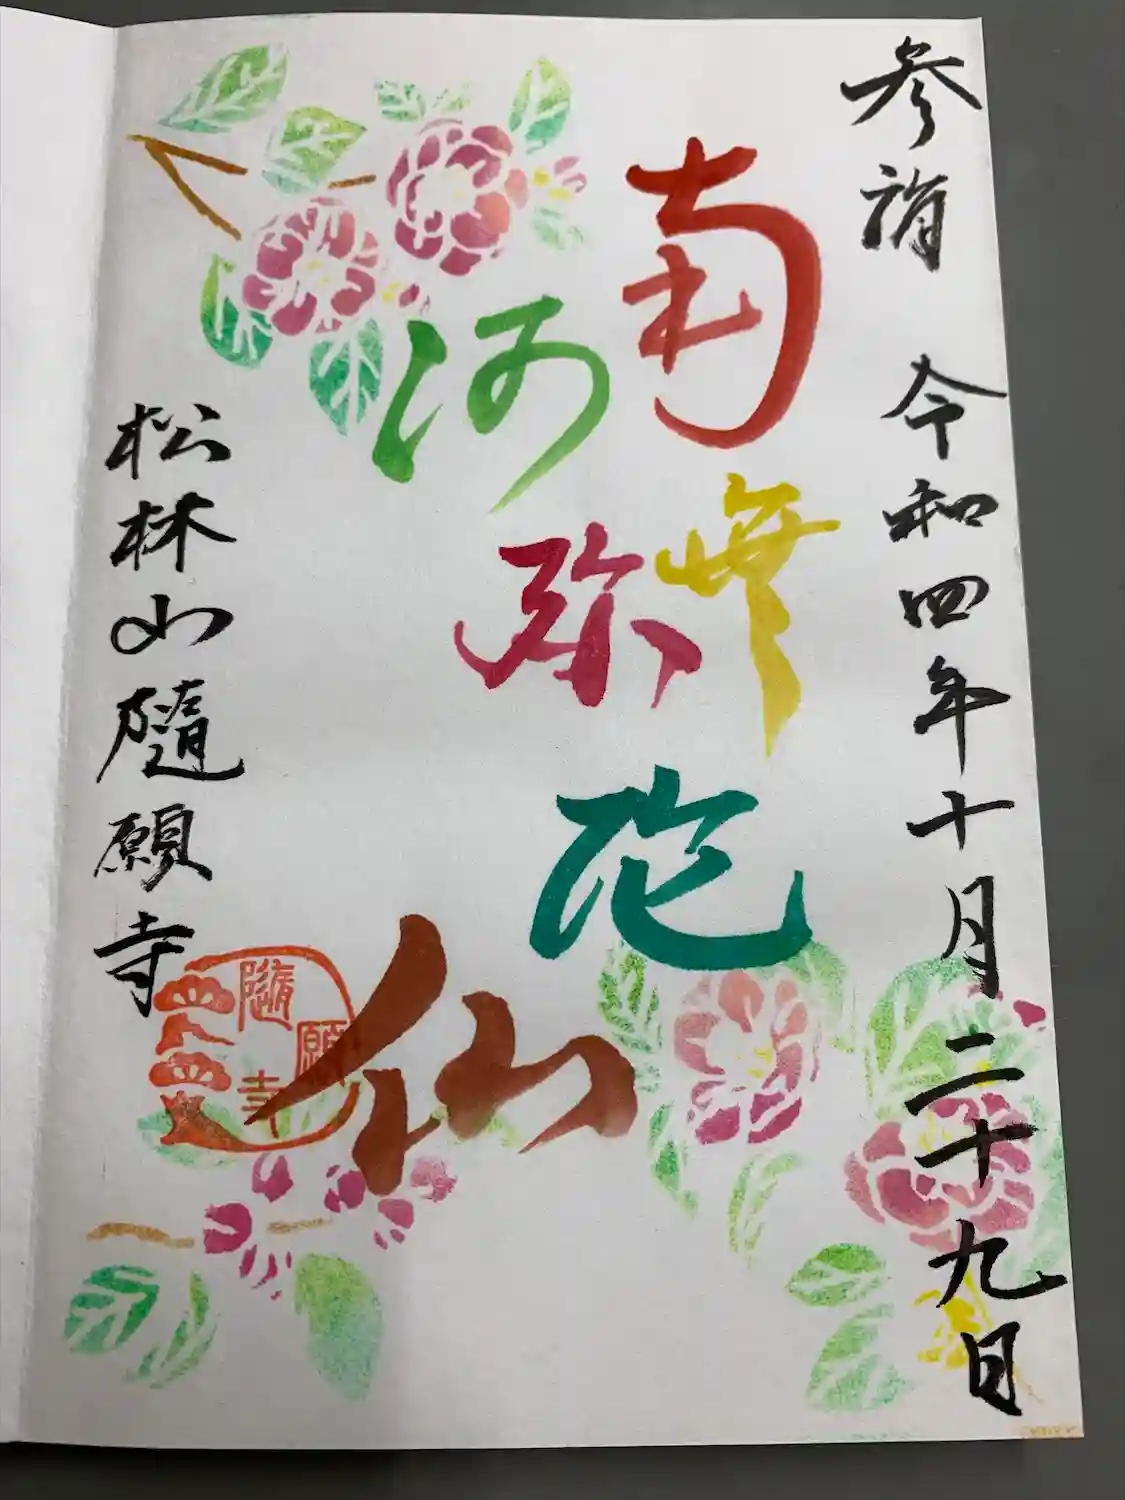 参詣 令和四年十月二十九日
南無
阿弥陀仏
松林山隨願寺
隨願寺